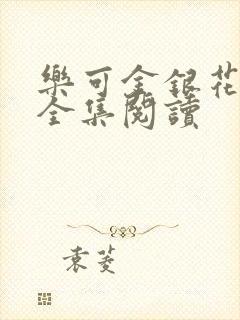 樂可金銀花
全集閱讀
袁菱